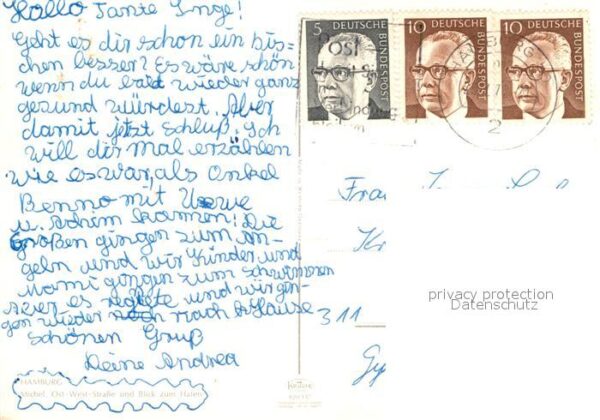 Hallo Tante Inge!
Geht es dir schon ein bis-
chen besser? Es wäre schön
wenn du bald wieder ganz
gesund würdest. Aber
damit jetzt Schluß. Ich
will dir mal erzählen
wie es war, als Onkel
Benno mit Uwe
u. Achim kamen! Die
Großen gingen zum An-
geln und wir Kinder und
Mami gingen zum schwimmen
aber es regnete und wir gin-
gen wieder nach Hause
Schönen Gruß
Deine Andrea
HAMBURG
Michel, Ost-West-Straße und Blick zum Hafen
5 DEUTSCHE BUNDESPOST
10 DEUTSCHE BUNDESPOST
10 DEUTSCHE BUNDESPOST
Post
HAMBURG
2
Frau
311
privacy protection
Datenschutz